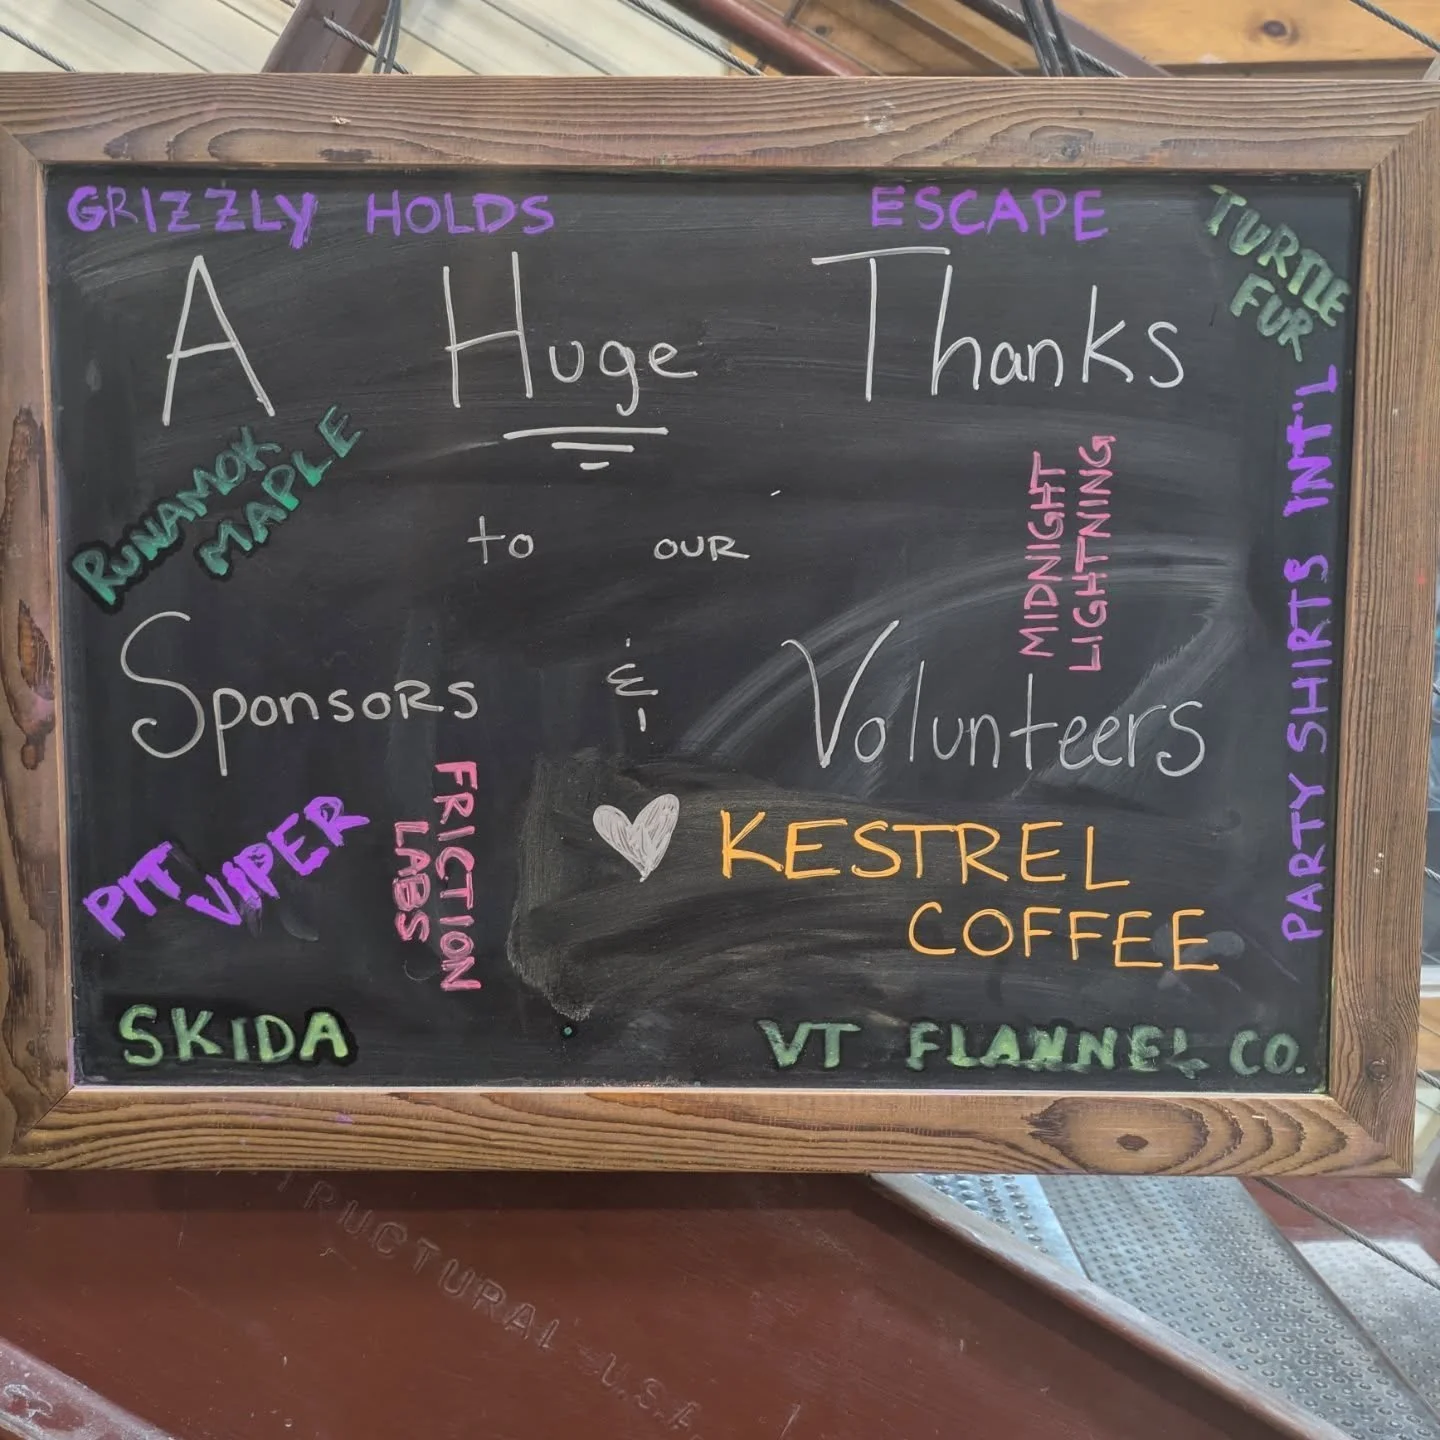 GRIZZLY HOLDS
ESCAPE
TURTLE
FUR
A Huge Thanks
RUNAMOK
MAPLE
MIDNIGHT
LIGHTNING
PARTY SHIRTS INT'L
to our
Sponsors & Volunteers
PIT VIPER
FRICTION
LABS
KESTREL
COFFEE
SKIDA
VT FLANNEL CO.
TRUCTURAL U.S.A